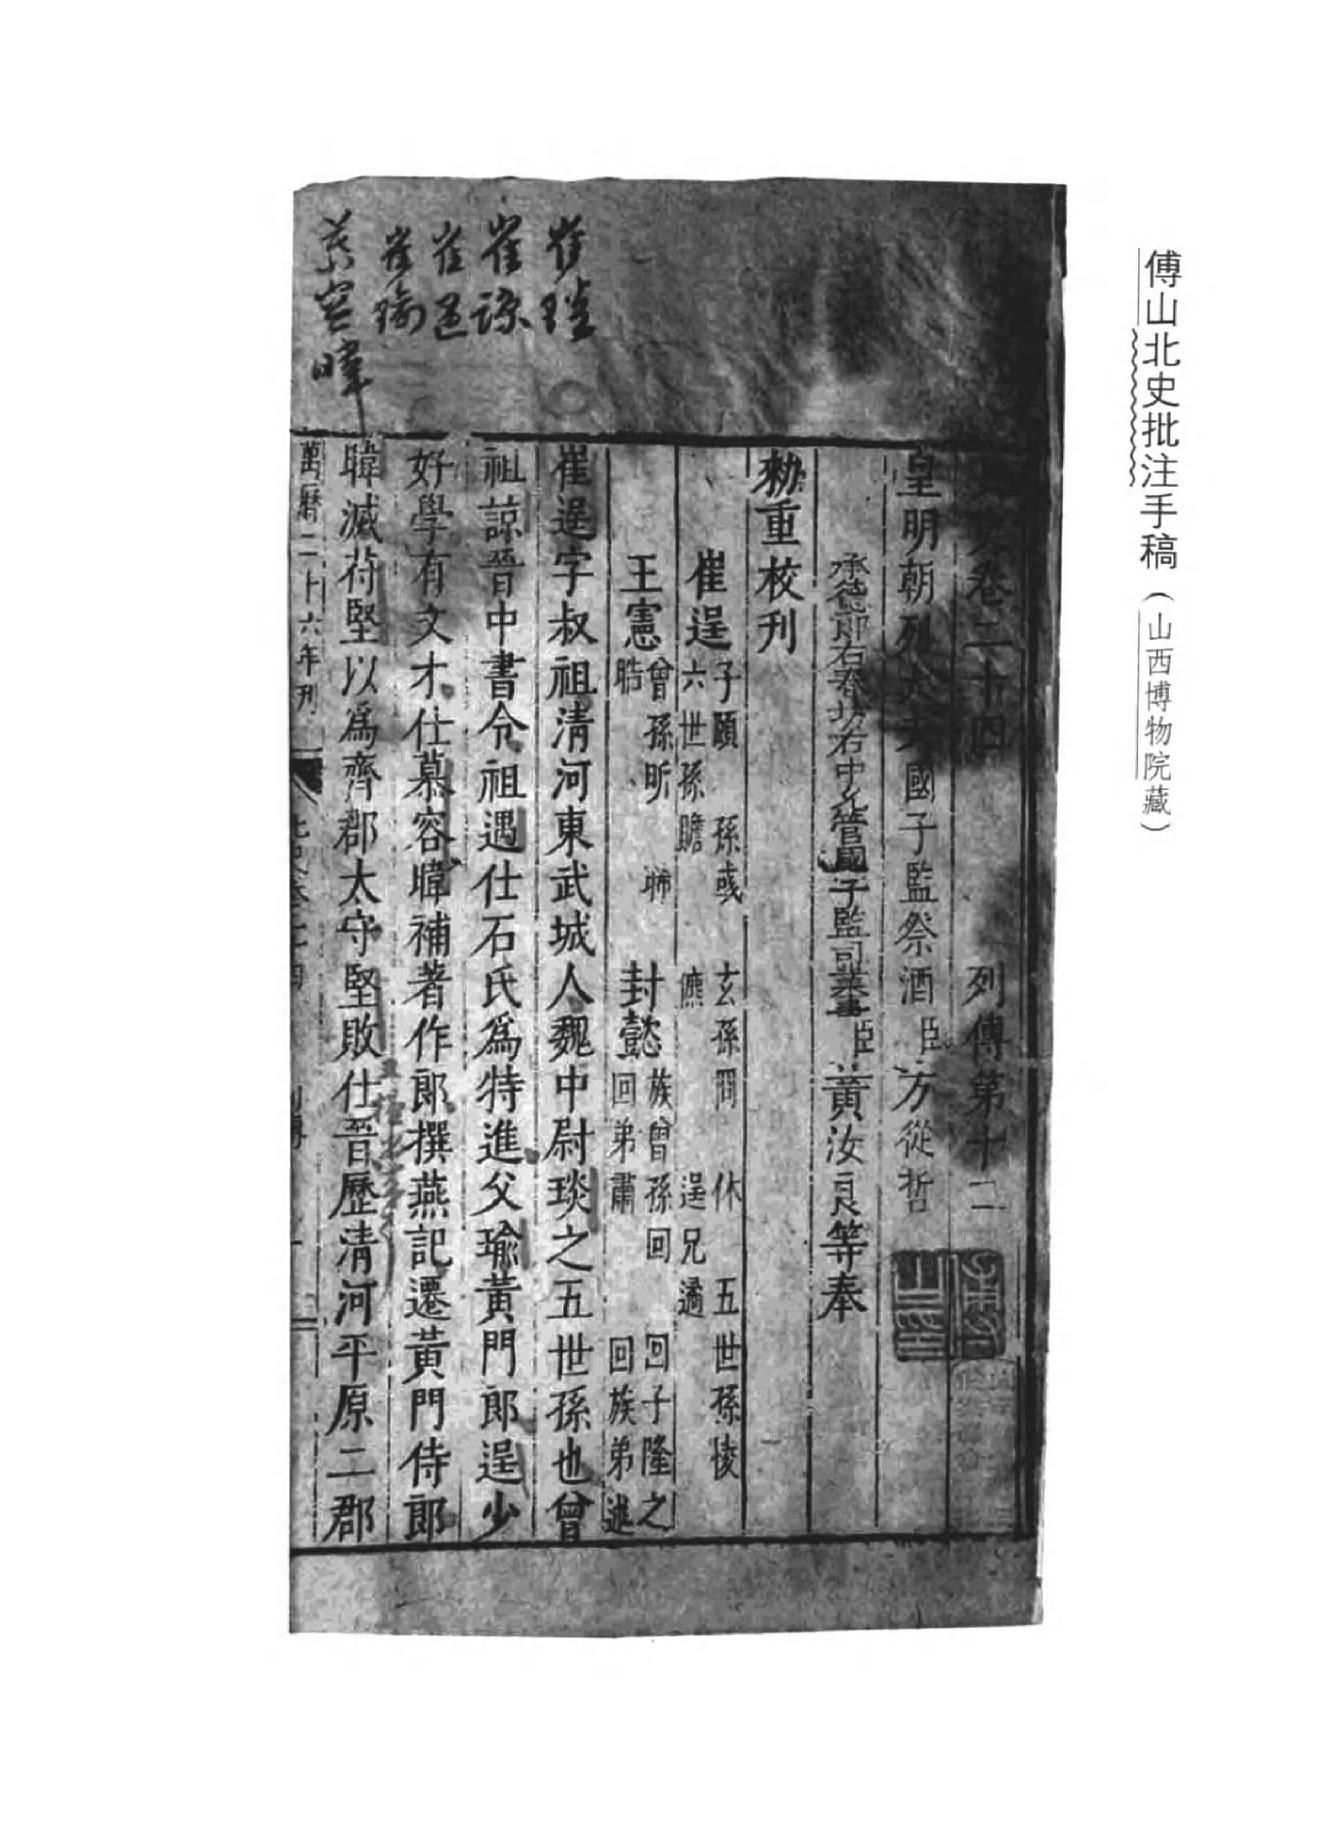 傅山北史批注手稿（山西博物院藏）
崔琰
崔諒
崔遇
崔瑜
慕容暐
卷二十四 列傳第十二
皇明朝列大夫國子監祭酒臣方從哲
承德郎右春坊右中允管國子監司業事臣黃汝良等奉
勑重校刊
崔逞 子頤 孫彧 玄孫冏 休 五世孫㥄
六世孫瞻 㒹 逞兄遹
王憲 曾孫昕 晞 封懿 族曾孫回 回子隆之
晧 回弟肅 回族弟述
崔逞字叔祖清河東武城人魏中尉琰之五世孫也曾
祖諒晉中書令祖遇仕石氏爲特進父瑜黃門郎逞少
好學有文才仕慕容暐補著作郎撰燕記遷黃門侍郎
暐滅苻堅以爲齊郡太守堅敗仕晉歷清河平原二郡
萬曆二十六年刊